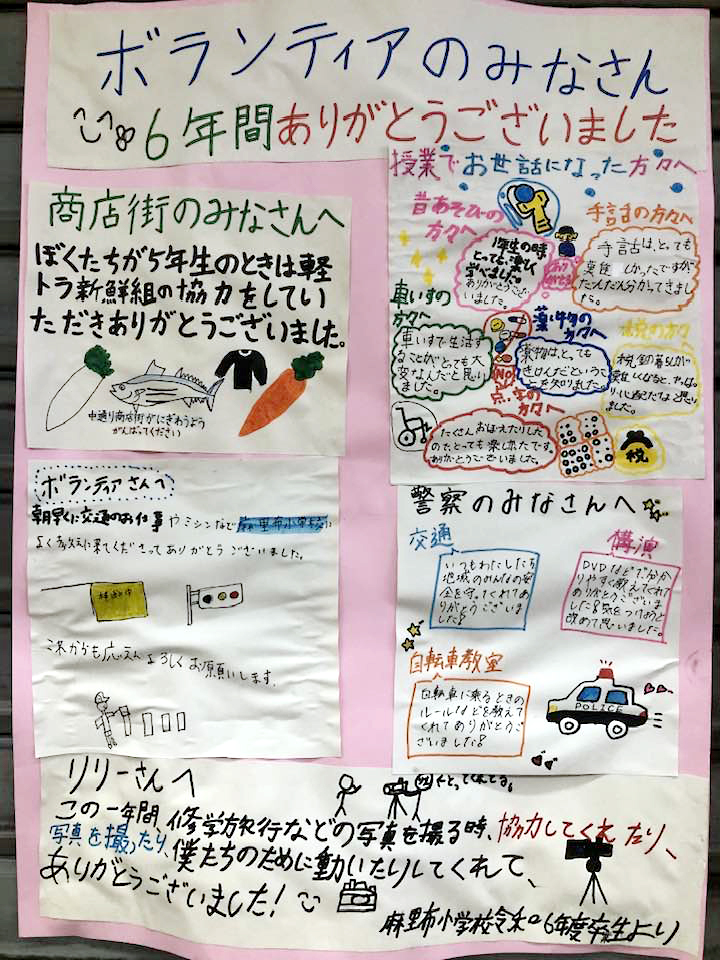 ボランティアのみなさん
6年間ありがとうございました
商店街のみなさんへ
ぼくたちが5年生のときは軽
トラ新鮮組の協力をしてい
ただきありがとうございました。
中通り商店街がにぎわうよう
がんばってください
授業でお世話になった方々へ
昔あそびの
方々へ
1年生の時
とっても楽しく
学べました。
ありがとうござい
ました。
手話の方々へ
手話は、とっても
難しかったですが
だんだん分かってきまし
た。
車いすの
方へ
車いすで生活す
ることがとても大
変なんだと思い
ました。
薬物の
方々へ
薬物は、とっても
きけんだというこ
とを知りました。
NO
税の方々へ
税金の暮らしが
難しくなると、
ました。
点字の
方々へ
たくさんおぼえたりした
ので、とっても楽しかたです。
ありがとうございました。
税
ボランティアさんへ
朝早くに交通のお仕事やミシンなどで麻里布小学校に
よく教えに来てくださってありがとうございました。
これからも応えんよろしくお願いします。
警察のみなさんへ
交通
いつもわたしたち
地域のみんなの安
全を守ってくれてあ
りがとうございま
した!
構演
DVDなどで分か
りやすく教えてくれて
ありがとうございま
した!気をつけようと
改めて思いました。
自転車教室
自転車に乗るときの
ルールなどを教えて
くれてありがとうご
ざいました!
POLICE
リリーさんへ
この一年間、修学旅行などの写真を撮る時、協力してくれたり、
写真を撮ったり、僕たちのために動いたりしてくれて、
ありがとうございました!
麻里布小学校令和6年度卒業生より